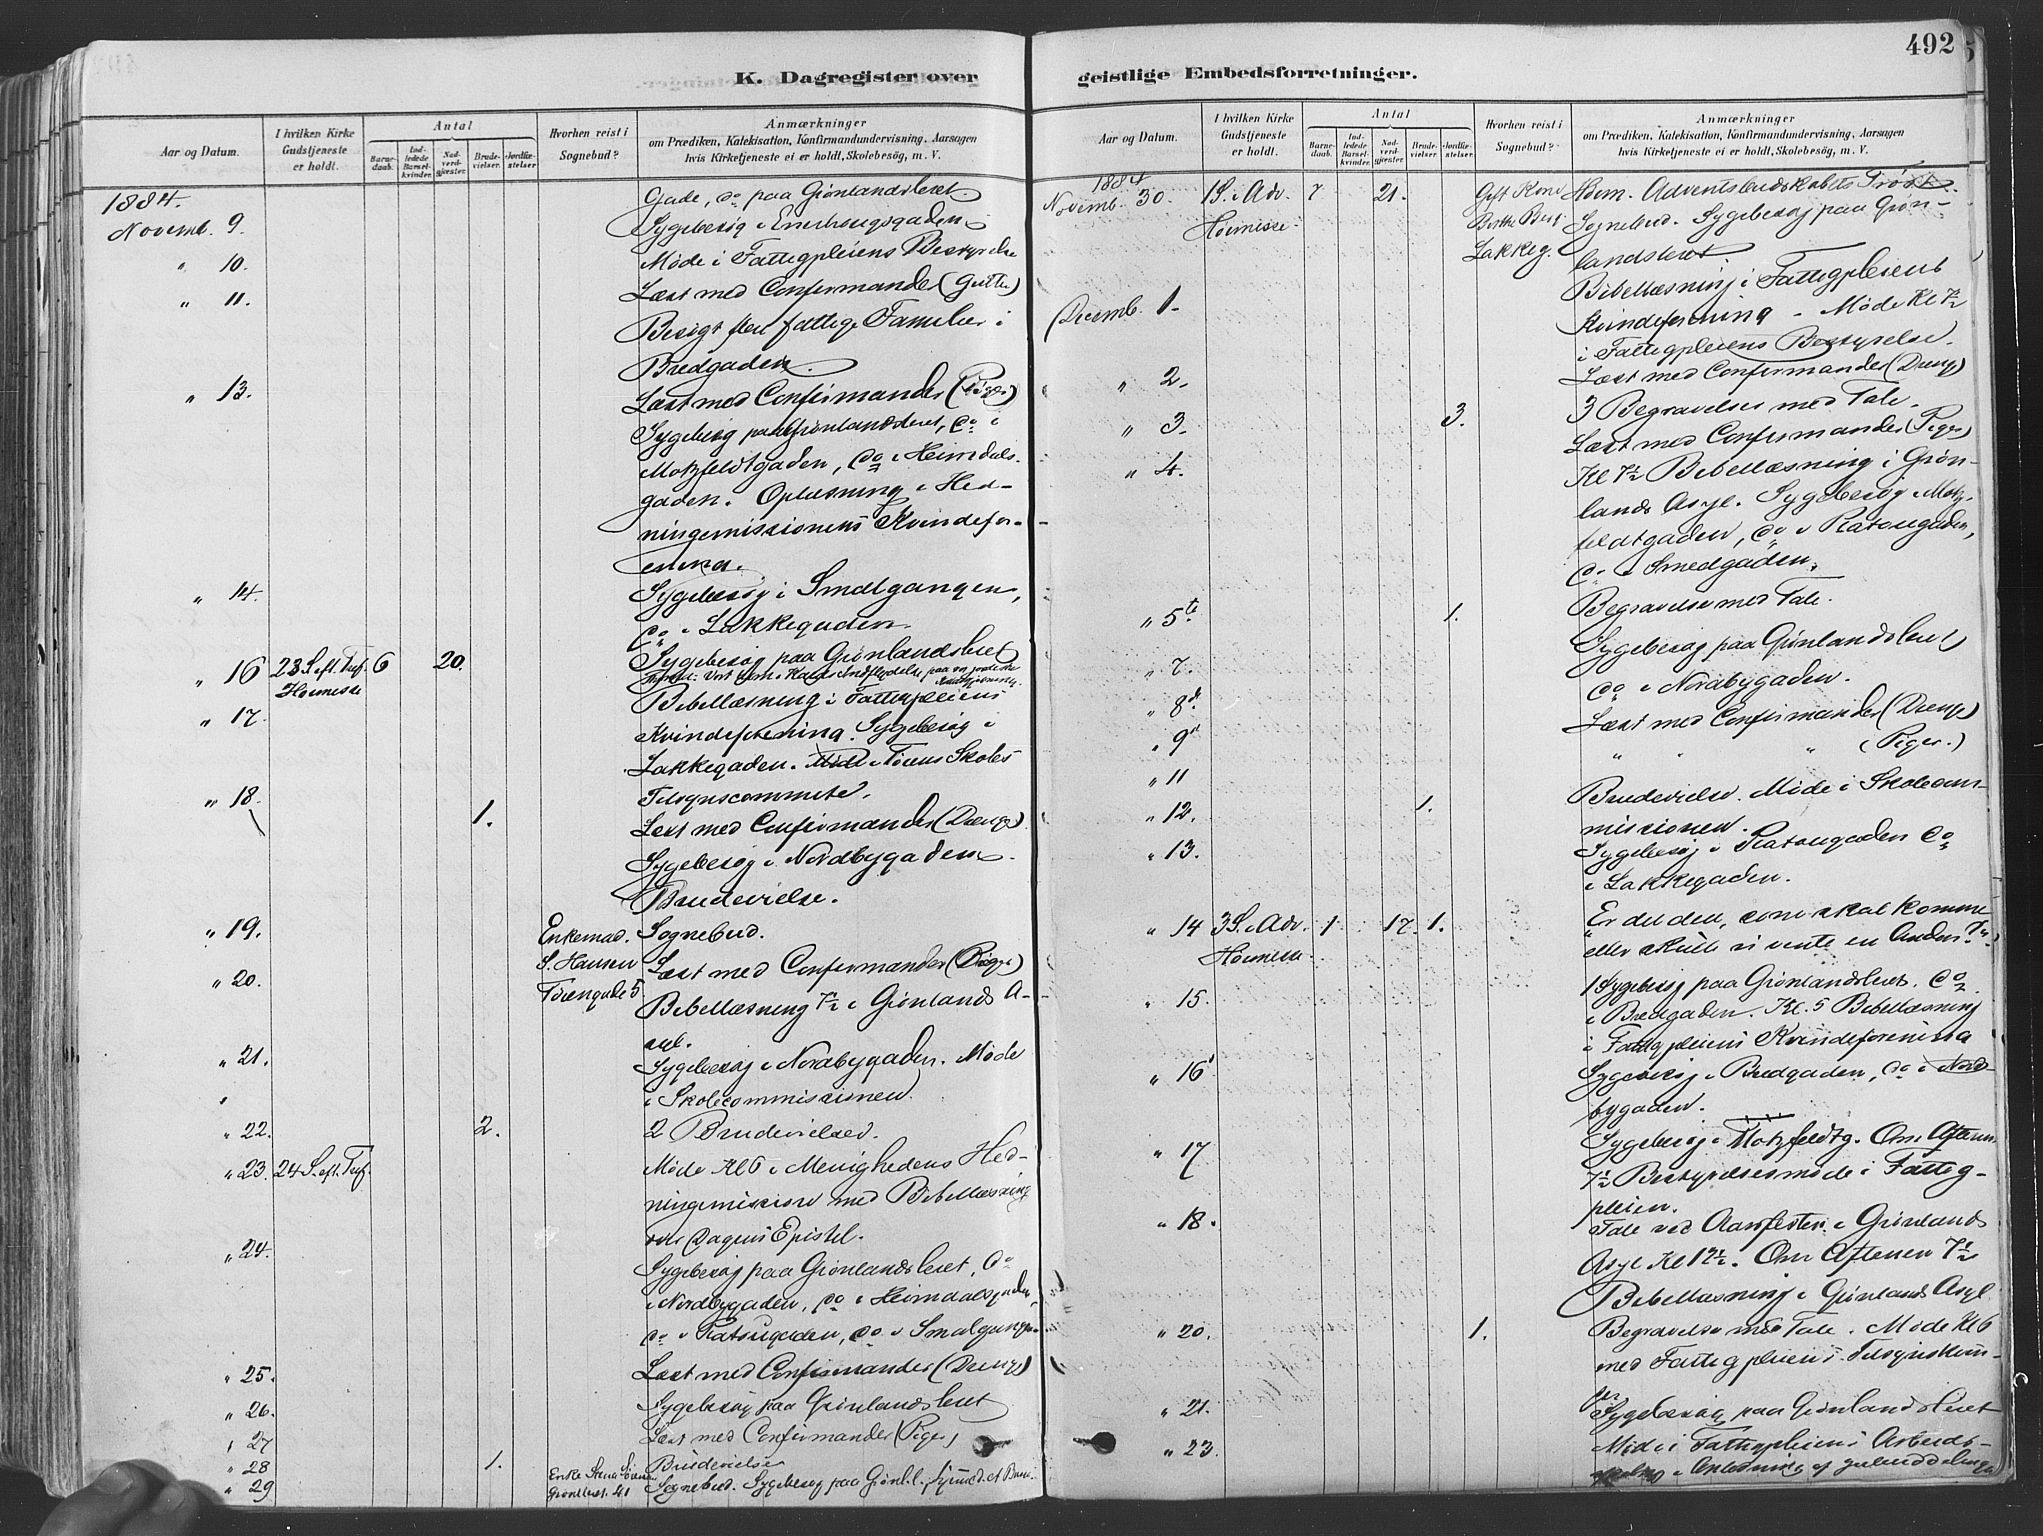 492
K. Dagregister over
geistlige Embedsforretninger.
Aar og Datum.
I hvilken Kirke Gudstjeneste er holdt.
Antal
Barnedaab.
Indledede Barselkvinder.
Nadverdgjester.
Brudevielser.
Jordfæstelser.
Hvorhen reist i Sognebud?
Anmærkninger
om Prædiken, Katekisation, Konfirmandundervisning, Aarsagen
hvis Kirketjeneste ei er holdt, Skolebesøg, m. V.
1884.
Gade, do paa Grønlandsleret
Novemb. 9.
Sygebesøg i Enerhaugsgaden.
" 10.
Møde i Fattigpleiens Bestyrelse
" 11.
Læst med Confirmander (Gutter)
Besøgt flere fattige Familier i
Bredgaden.
" 13.
Læst med Confirmander (Piger)
Sygebesøg paa Grønlandsleret, do i
Motzfeldtgaden, do i Heimdals-
gaden. Oplæsning i Hed-
ningemissionens Kvindefor-
ening.
" 14.
Sygebesøg i Smalgangen,
do i Lakkegaden.
Sygebesøg paa Grønlandsleret
" 16 23 S. eft. Tref. 6 20.
Høimesse
" 17.
Bibellæsning i Fattigpleiens
Kvindeforening. Sygebesøg i
Lakkegaden. Møde i Tøiens Skoles
" 18. 1.
Tilsynscommite.
Læst med Confirmander (Drenge)
Sygebesøg i Nordbygaden.
Brudevielse.
" 19. Enkemad. Sognebud.
S. Hansen Læst med Confirmander (Piger)
" 20.
Bibellæsning 7½ i Grønlands A-
syl.
" 21.
Sygebesøg i Nordbygaden. Møde
i Skolecommissionen.
" 22. 2. 2 Brudevielser.
" 23. 24 S. eft. Tref. Møde Kl 6 i Menighedens Hed-
ningemission med Bibellæsning
over Dagens Epistel.
" 24.
Sygebesøg paa Grønlandsleret, do
i Nordbygaden, do i Heimdalsgaden,
do i Platougaden, do i Smalgangen
" 25. Læst med Confirmander (Drenge)
" 26. Sygebesøg paa Grønlandsleret
" 27 Læst med Confirmander (Piger)
" 28 1. Brudevielse
" 29 Enke
Grønlleret. 41 Sognebud. Sygebesøg paa Grønl.l.
Aar og Datum.
I hvilken Kirke Gudstjeneste er holdt.
Antal
Barnedaab.
Indledede Barselkvinder.
Nadverdgjester.
Brudevielser.
Jordfæstelser.
Hvorhen reist i Sognebud?
Anmærkninger
om Prædiken, Katekisation, Konfirmandundervisning, Aarsagen
hvis Kirketjeneste ei er holdt, Skolebesøg, m. V.
1884
Novemb. 30. 1 S. i Adv. 7 21. Gift Kone Hoem. Adventsbudskabets Trøst.
Høimesse. Berthe Sognebud. Sygebesøg paa Grøn-
Lakkeg. landsleret
Bibellæsning i Fattigpleiens
Decemb. 1. Kvindeforening - Møde Kl 7½
i Fattigpleiens Bestyrelse.
" 2. Læst med Confirmander (Drenge)
" 3. 3. 3 Begravelser med Tale.
Læst med Confirmander (Piger)
" 4. Kl 7½ Bibellæsning i Grøn-
lands Asyl. Sygebesøg i Motz-
feldtgaden, do i Platougaden,
do i Smedgaden.
" 5te 1. Begravelse med Tale.
Sygebesøg paa Grønlandsleret
" 7. do i Nordbygaden.
" 8d. Læst med Confirmander (Drenge)
" 9d " " " (Piger.)
" 11
Brudevielse. Møde i Skolecom-
" 12. 1. missionen.
" 13. Sygebesøg i Platougaden do
i Lakkegaden.
" 14 3 S. i Adv. 1 17. 1. "Er du den, som skal komme
Høimesse eller skulle vi vente en Anden?"
" 15. Sygebesøg paa Grønlandsleret. do
i Bredgaden. Kl. 5 Bibellæsning
i Fattigpleiens Kvindeforening
" 16 Sygebesøg i Bredgaden, do i Nord-
bygaden.
" 17 Sygebesøg i Motzfeldtg. Om Aftenen
7½ Bestyrelsesmøde i Fattig-
pleien.
" 18. Tale ved Aarsfesten i Grønlands
Asyl Kl 12½. Om Aftenen 7½
Bibellæsning i Grønlands Asyl
" 20. 1. Begravelse med Tale. Møde Kl 6
med Fattigpleiens Tilsynskom-
" 21. Sygebesøg paa Grønlandsleret
" 23. Møde i Fattigpleiens Arbeids-
i Anledning af